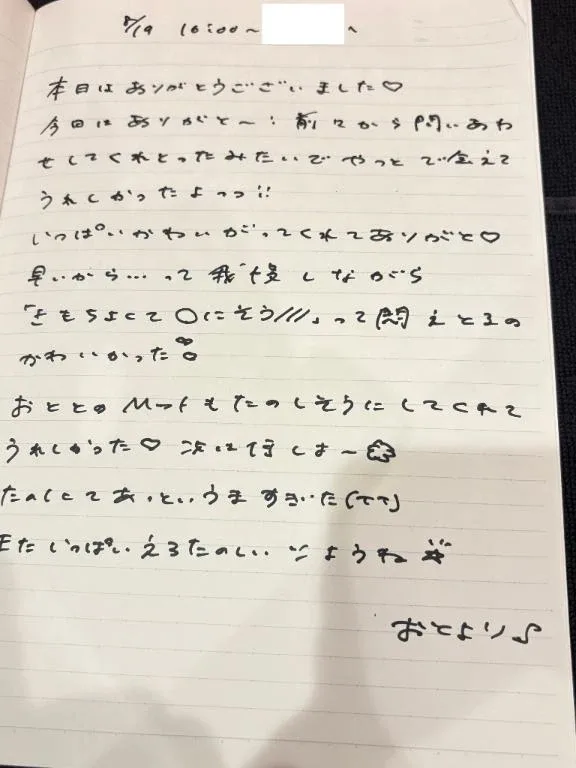 8/19 16:00~ へ
本日はありがとうございました♡
今回はありがと〜! 前々から問いあわ
せしてくれとったみたいでやっと会えて
うれしかったよっっ!!
いっぱいかわいがってくれてありがと♡
早いから…って我慢しながら
「きもちよくて〇にそう///」って悶えとるの
かわいかった
おととのMットもたのしそうにしてくれて
うれしかった♡ 次は しよ〜
たのしくてあっというますぎた(TT)
またいっぱいえろたのしい しようね☆
おとより♪